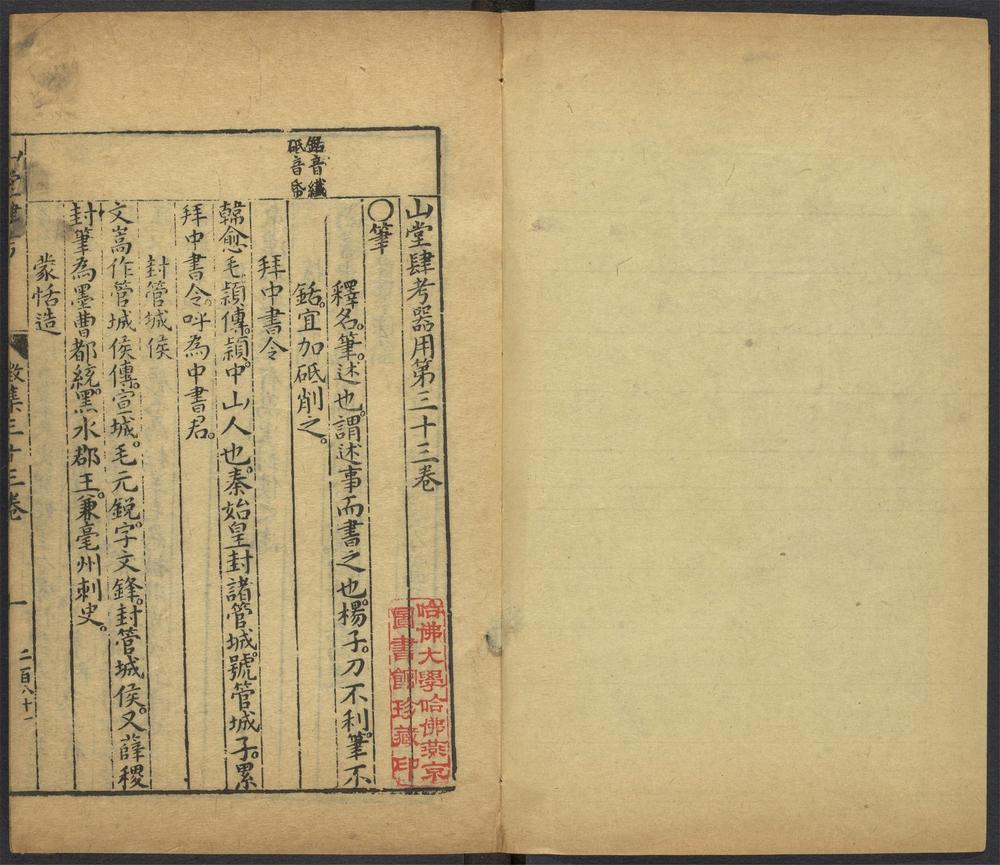 山堂肆考器用第三十三卷
○筆
釋名。筆。述也。謂述事而書之也。楊子。刀不利。筆不
銛。宜加砥削之。
銛音纖
砥音帋
拜中書令
韓愈毛頴傳。頴。中山人也。秦始皇封諸管城。號管城子。累
拜中書令。呼為中書君。
封管城侯
文嵩作管城侯傳。宣城。毛元鋭。字文鋒。封管城侯。又薛稷
封筆為墨曹都統。黑水郡王。兼毫州刺史。
蒙恬造
山堂肆考
徵集三十三卷
一
二百八十一
哈佛大學哈佛燕京
圖書館珍藏印